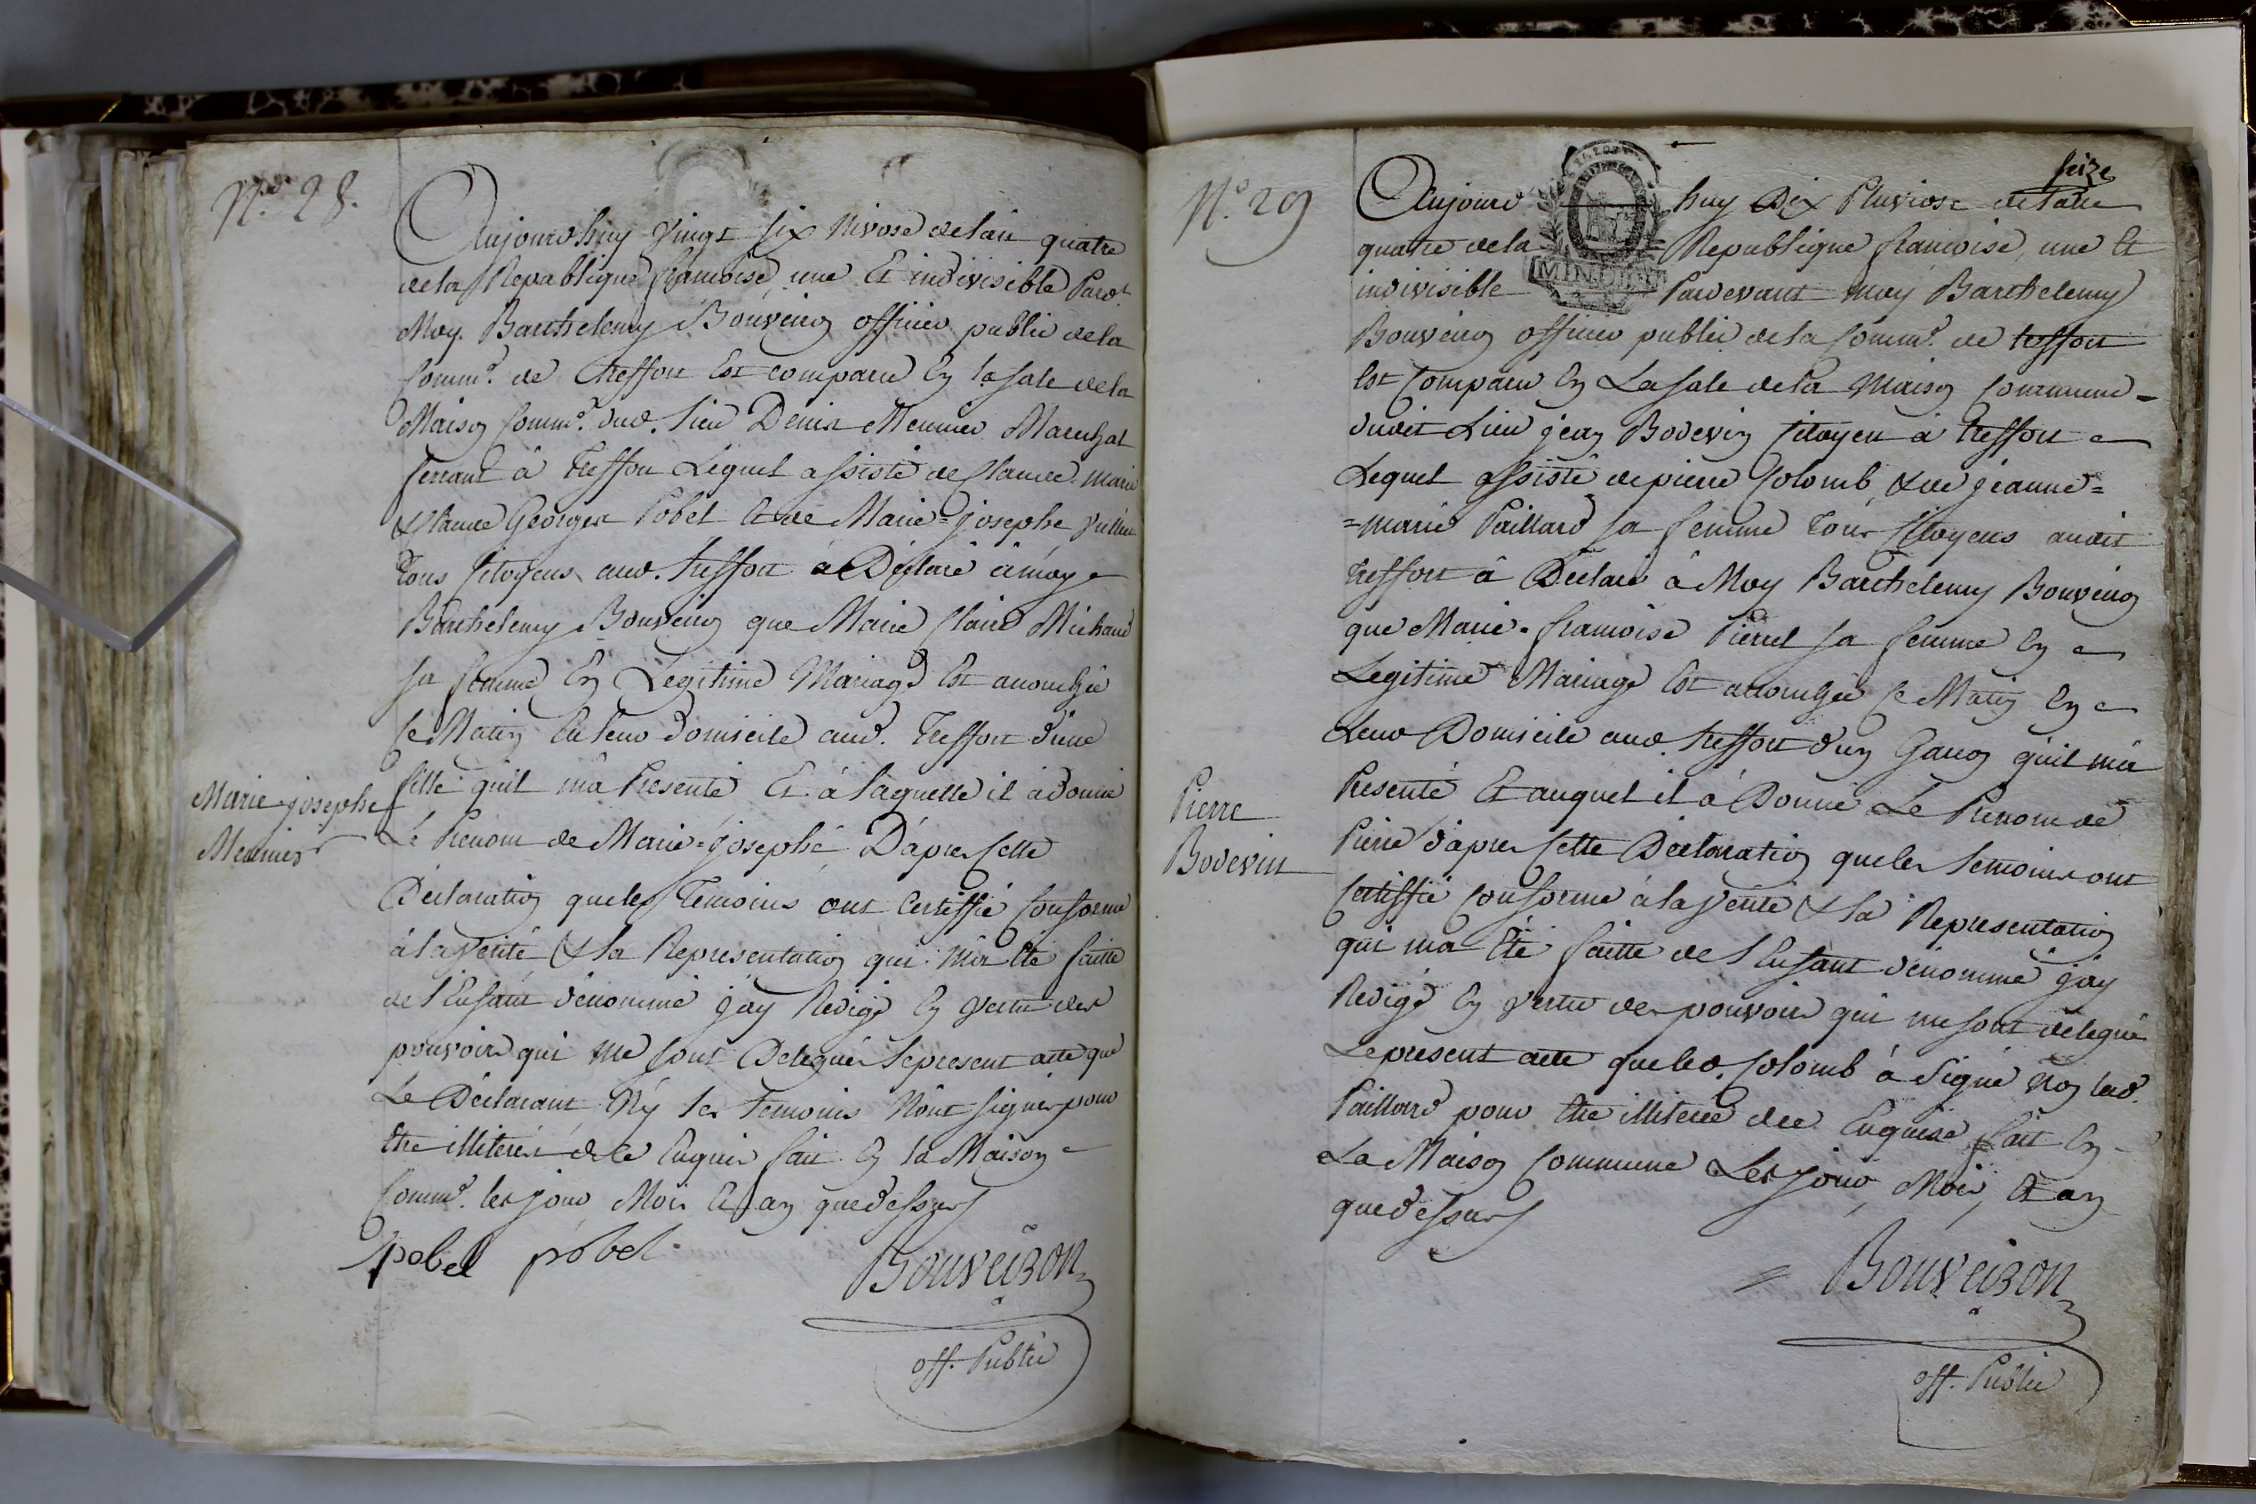 N.º 28.
Aujourdhuy vingt six Nivose delan quatre
dela Republique francoise, une Et indivisible Pard.t
Moy Barthelemy Bouveiron officier public dela
Comm.e de treffort Est comparu En la sale dela
Maison Comm.e dud. lieu Denis Meunier Marechal
ferrant à Treffort Lequel assisté de Claude marie
& Claude Georges Pobel et de Marie=josephe
tous Citoyens aud. treffort à Déclaré à moy
Barthelemy Bouveiron que Marie Claire Michaud
sa femme En Legitime Mariage Est accouchée
ce Matin En leur domicile aud. Treffort d'une
fille quil mà Presenté Et à laquelle il à donné
Marie josephe
Meunier
Le Prenom de Marie=josephe D'apres Cette
Déclaration queles Temoins ont Certiffié Conforme
à la verité & la Representation qui mà Eté faitte
de l'Enfant dénommé j'ay Redigé En vertu des
pouvoirs qui me sont Delegués le present acte que
Le Déclarant Ny les temoins N'ont signés pour
être illiterés de ce Enquis fait En la Maison
Comm.e les jour Mois Et an quedessus
pobel pobel
Bouveiron
off. Public
N.º 29
seize
Aujourd huy Dix Pluviose delan
quatre dela Republique francoise, une Et
indivisible Pardevant moy Barthelemy
Bouveiron officier public dela Comm.e de treffort
Est Comparu En La sale dela Maison Commune
dudit Lieu jean Bodevin Citoyen à treffort
Lequel assisté de pierre Colomb & de jeanne=
=marie Paillard sa femme tous Citoyens audit
treffort à Déclaré à Moy Barthelemy Bouveiron
que Marie=francoise Pierrel sa femme En
Legitime Mariage Est accouchée ce Matin En
Leur Domicile aud. treffort d'un Garçon quil mà
Presenté Et auquel il à Donné Le Prenom de
Pierre
Bodevin
Pierre d'apres Cette Déclaration queles temoins ont
Certiffié Conforme à la verité & la Representation
qui mà Eté faitte de l'Enfant dénommé j'ay
Redigé En vertu des pouvoirs qui me sont delegué
Le present acte queled. Colomb à signé non lad.
Paillard pour être illiterée dece Enquise fait En
La Maison Commune Les jour, Mois, Et an
quedessus
Bouveiron
off. Public